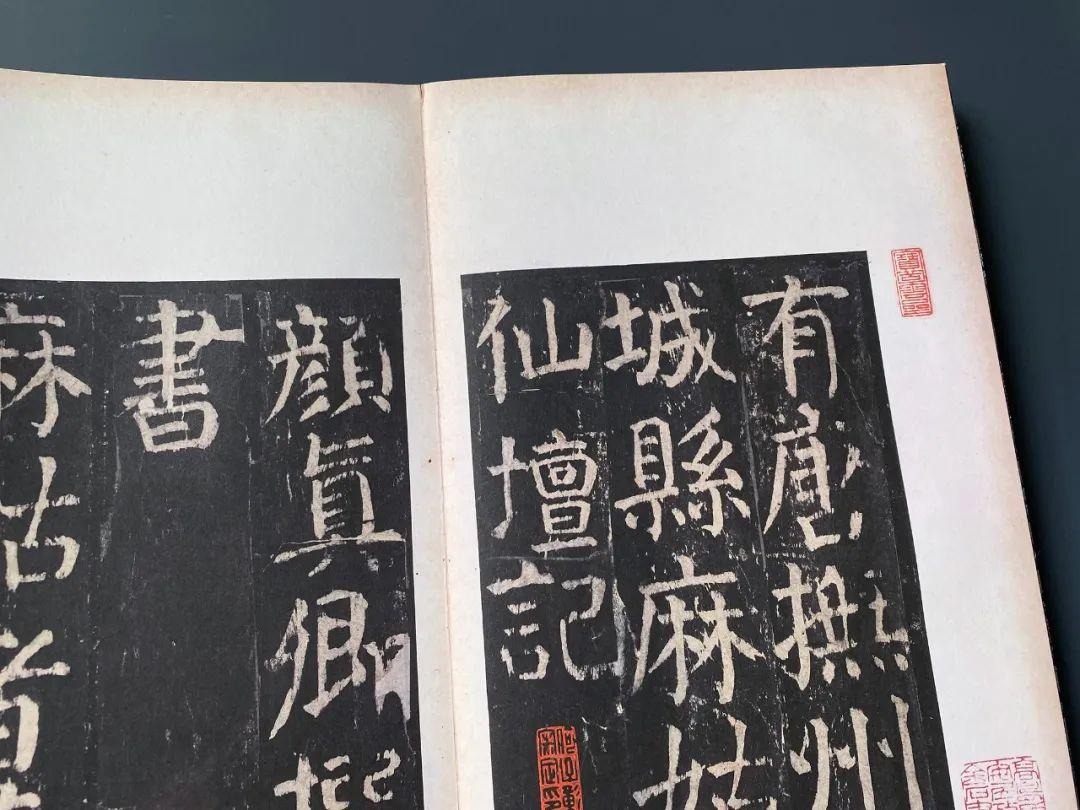 有唐撫州
城縣麻姑
仙壇記
顏眞卿撰
書
麻姑者